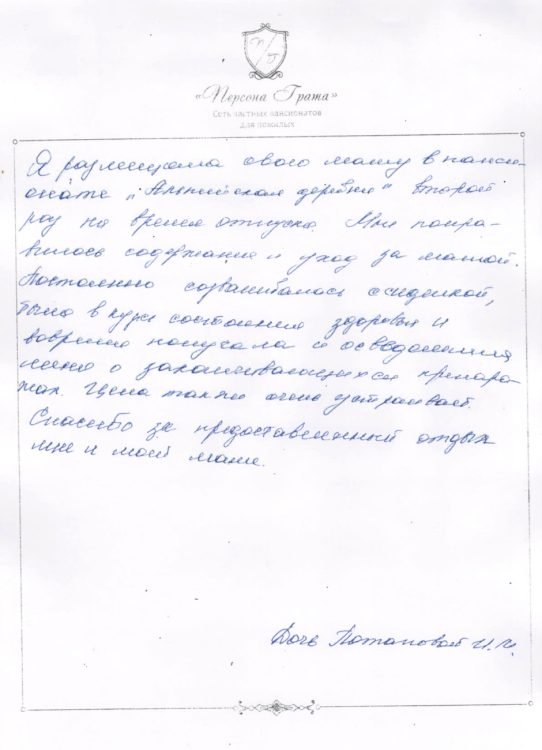 П/Г
«Персона Грата»
Сеть частных пансионатов
для пожилых
Я размещала свою маму в панси-
онате "Альпийская деревня" второй
раз на время отпуска. Мне понра-
вилось содержание и уход за мамой.
Постоянно созванивалась с сиделкой,
была в курсе состояния здоровья и
вовремя
меня о заканчивающихся препара-
тах. Цена также очень устраивает.
Спасибо за предоставленный отдых
мне и моей маме.
Дочь Потаповой И.И.